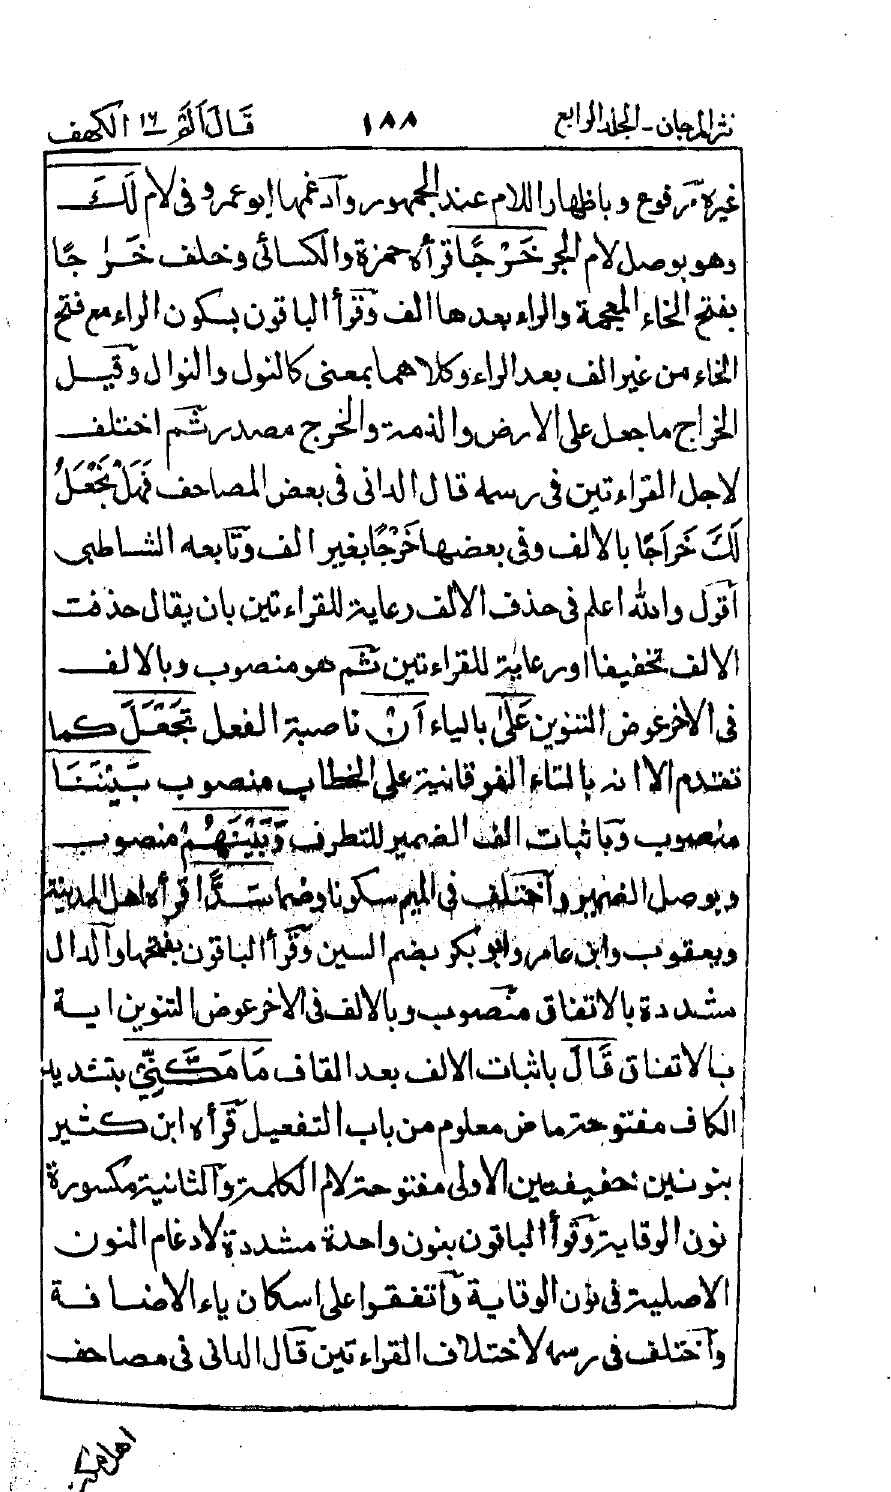 نثر المرجان - المجلد الرابع ١٨٨ قَالَ اَلَمْ ١٦ الكهف
غيره مرفوع وباظهار اللام عند الجمهور وادغمها ابو عمرو فى لام لَكَ
وهو بوصل لام الجر خَرْجًا قرأه حمزة والكسائى وخلف خَرَاجًا
بفتح الخاء المعجمة والراء بعدها الف وقرأ الباقون بسكون الراء مع فتح
الخاء من غير الف بعد الراء وكلاهما بمعنى كالنول والنوال وقيل
الخراج ما جعل على الارض والذمة والخرج مصدر ثم اختلف
لاجل القراءتين فى رسمه قال الدانى فى بعض المصاحف فَهَلْ نَجْعَلُ
لَكَ خَرَاجًا بالالف وفى بعضها خَرْجًا بغير الف وتابعه الشاطبى
اقول والله اعلم فى حذف الالف رعاية للقراءتين بان يقال حذفت
الالف تخفيفا او رعاية للقراءتين ثم هو منصوب وبالالف
فى الاخر عوض التنوين عَلٰى بالياء اَنْ ناصبة الفعل تَجْعَلَ كما
تقدم الا انه بالتاء الفوقانية على الخطاب منصوب بَيْنَنَا
منصوب وباثبات الف الضمير للتطرف وَبَيْنَهُمْ منصوب
وبوصل الضمير واختلف فى الميم سكونا وضما سَدًّا قرأه اهل المدينة
ويعقوب وابن عامر وابو بكر بضم السين وقرأ الباقون بفتحها والدال
مشددة بالاتفاق منصوب وبالالف فى الاخر عوض التنوين اية
بالاتفاق قَالَ باثبات الالف بعد القاف مَا مَكَّنِّيْ بتشديد
الكاف مفتوحة ماض معلوم من باب التفعيل قرأه ابن كثير
بنونين خفيفتين الاولى مفتوحة لام الكلمة والثانية مكسورة
نون الوقاية وقرأ الباقون بنون واحدة مشددة لادغام النون
الاصلية فى نون الوقاية واتفقوا على اسكان ياء الاضافة
واختلف فى رسمه لاختلاف القراءتين قال الدانى فى مصاحف
اهل مكة